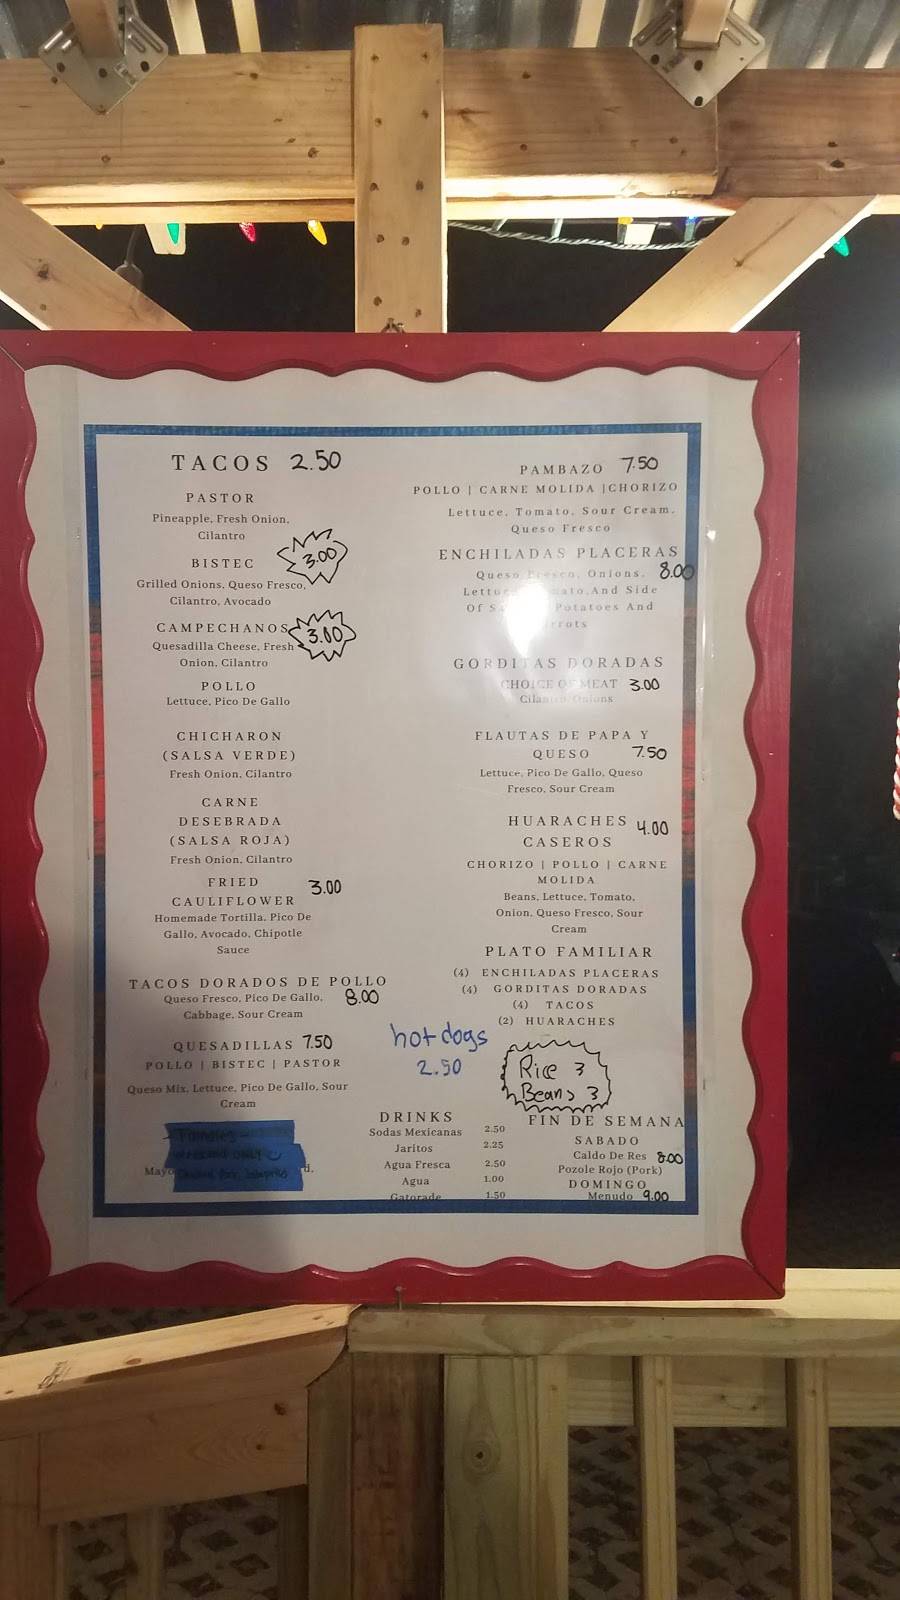 TACOS 2.50
PASTOR
Pineapple, Fresh Onion,
Cilantro
BISTEC 3.00
Grilled Onions, Queso Fresco,
Cilantro, Avocado
CAMPECHANOS 3.00
Quesadilla Cheese, Fresh
Onion, Cilantro
POLLO
Lettuce, Pico De Gallo
CHICHARON
(SALSA VERDE)
Fresh Onion, Cilantro
CARNE
DESEBRADA
(SALSA ROJA)
Fresh Onion, Cilantro
FRIED 3.00
CAULIFLOWER
Homemade Tortilla, Pico De
Gallo, Avocado, Chipotle
Sauce
TACOS DORADOS DE POLLO
Queso Fresco, Pico De Gallo, 8.00
Cabbage, Sour Cream
QUESADILLAS 7.50
POLLO | BISTEC | PASTOR
Queso Mix, Lettuce, Pico De Gallo, Sour
Cream
Tamales
weekend ONLY
Mayo
d.
PAMBAZO 7.50
POLLO | CARNE MOLIDA |CHORIZO
Lettuce, Tomato, Sour Cream,
Queso Fresco
ENCHILADAS PLACERAS
Queso Fresco, Onions, 8.00
And Side
Of Potatoes And
GORDITAS DORADAS
CHOICE OF MEAT 3.00
Cilantro, Onions
FLAUTAS DE PAPA Y
QUESO 7.50
Lettuce, Pico De Gallo, Queso
Fresco, Sour Cream
HUARACHES 4.00
CASEROS
CHORIZO | POLLO | CARNE
MOLIDA
Beans, Lettuce, Tomato,
Onion, Queso Fresco, Sour
Cream
PLATO FAMILIAR
(4) ENCHILADAS PLACERAS
(4) GORDITAS DORADAS
(4) TACOS
(2) HUARACHES
hot dogs
2.50
Rice 3
Beans 3
DRINKS
Sodas Mexicanas 2.50
Jaritos 2.25
Agua Fresca 2.50
Agua 1.00
Gatorade 1.50
FIN DE SEMANA
SABADO
Caldo De Res 8.00
Pozole Rojo (Pork)
DOMINGO
Menudo 9.00